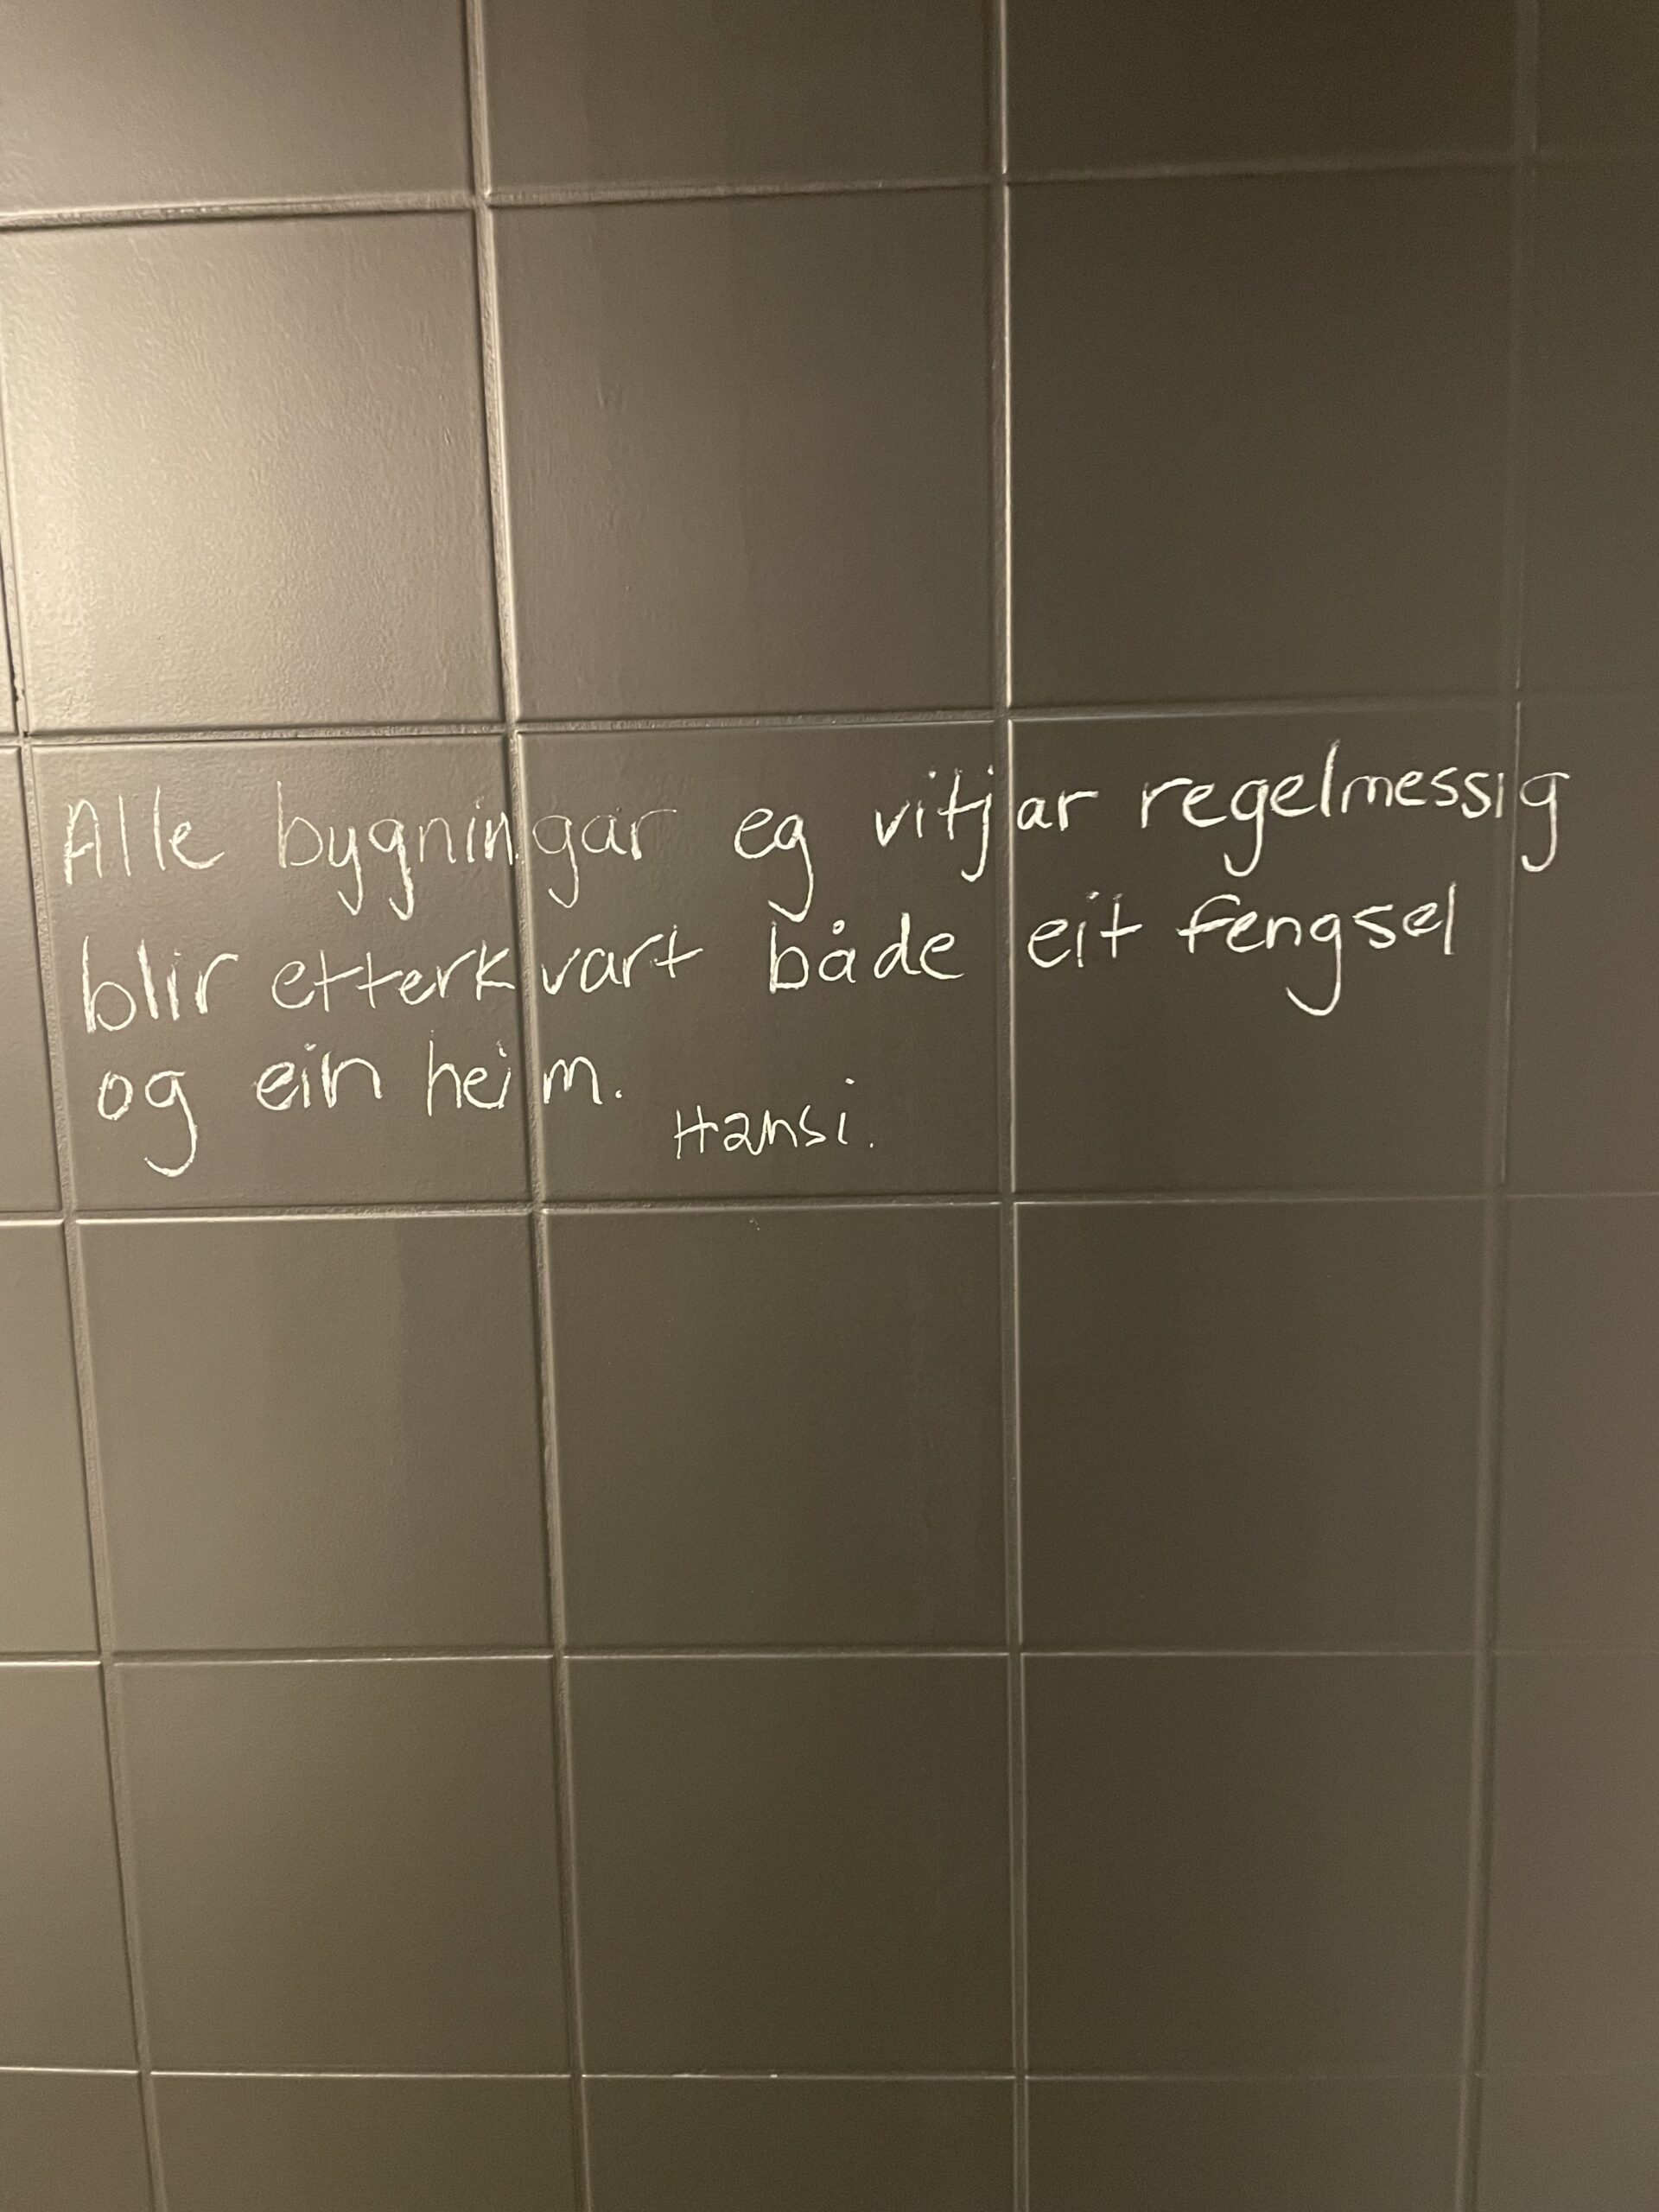 Alle bygningar eg vitjar regelmessig
blir etterkvart både eit fengsel
og ein heim.
Hansi.